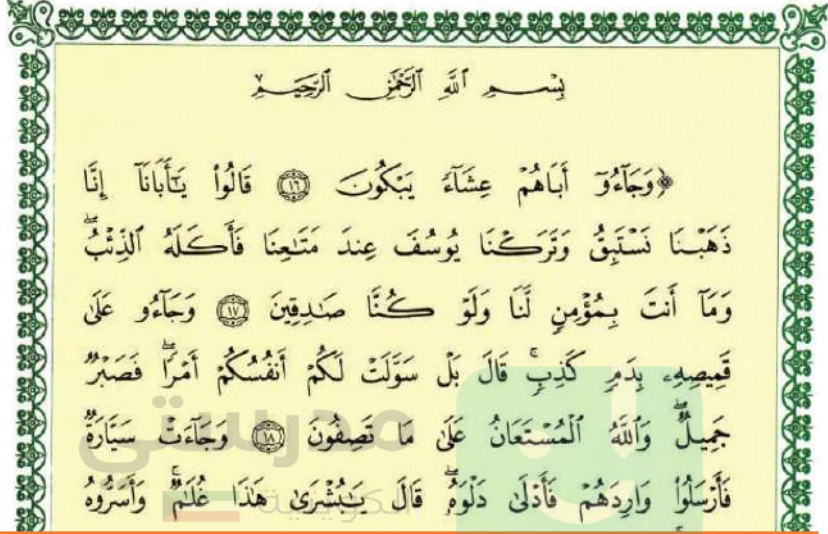 بِسْمِ ٱللَّهِ ٱلرَّحْمَٰنِ ٱلرَّحِيمِ
﴿وَجَآءُوٓ أَبَاهُمْ عِشَآءً يَبْكُونَ ۝١٦ قَالُوا۟ يَٰٓأَبَانَآ إِنَّا
ذَهَبْنَا نَسْتَبِقُ وَتَرَكْنَا يُوسُفَ عِندَ مَتَٰعِنَا فَأَكَلَهُ ٱلذِّئْبُ ۖ
وَمَآ أَنتَ بِمُؤْمِنٍ لَّنَا وَلَوْ كُنَّا صَٰدِقِينَ ۝١٧ وَجَآءُو عَلَىٰ
قَمِيصِهِۦ بِدَمٍ كَذِبٍ ۚ قَالَ بَلْ سَوَّلَتْ لَكُمْ أَنفُسُكُمْ أَمْرًا ۖ فَصَبْرٌ
جَمِيلٌ ۖ وَٱللَّهُ ٱلْمُسْتَعَانُ عَلَىٰ مَا تَصِفُونَ ۝١٨ وَجَآءَتْ سَيَّارَةٌ
فَأَرْسَلُوا۟ وَارِدَهُمْ فَأَدْلَىٰ دَلْوَهُۥ ۖ قَالَ يَٰبُشْرَىٰ هَٰذَا غُلَٰمٌ ۚ وَأَسَرُّوهُ
مدرستي
الكويتية